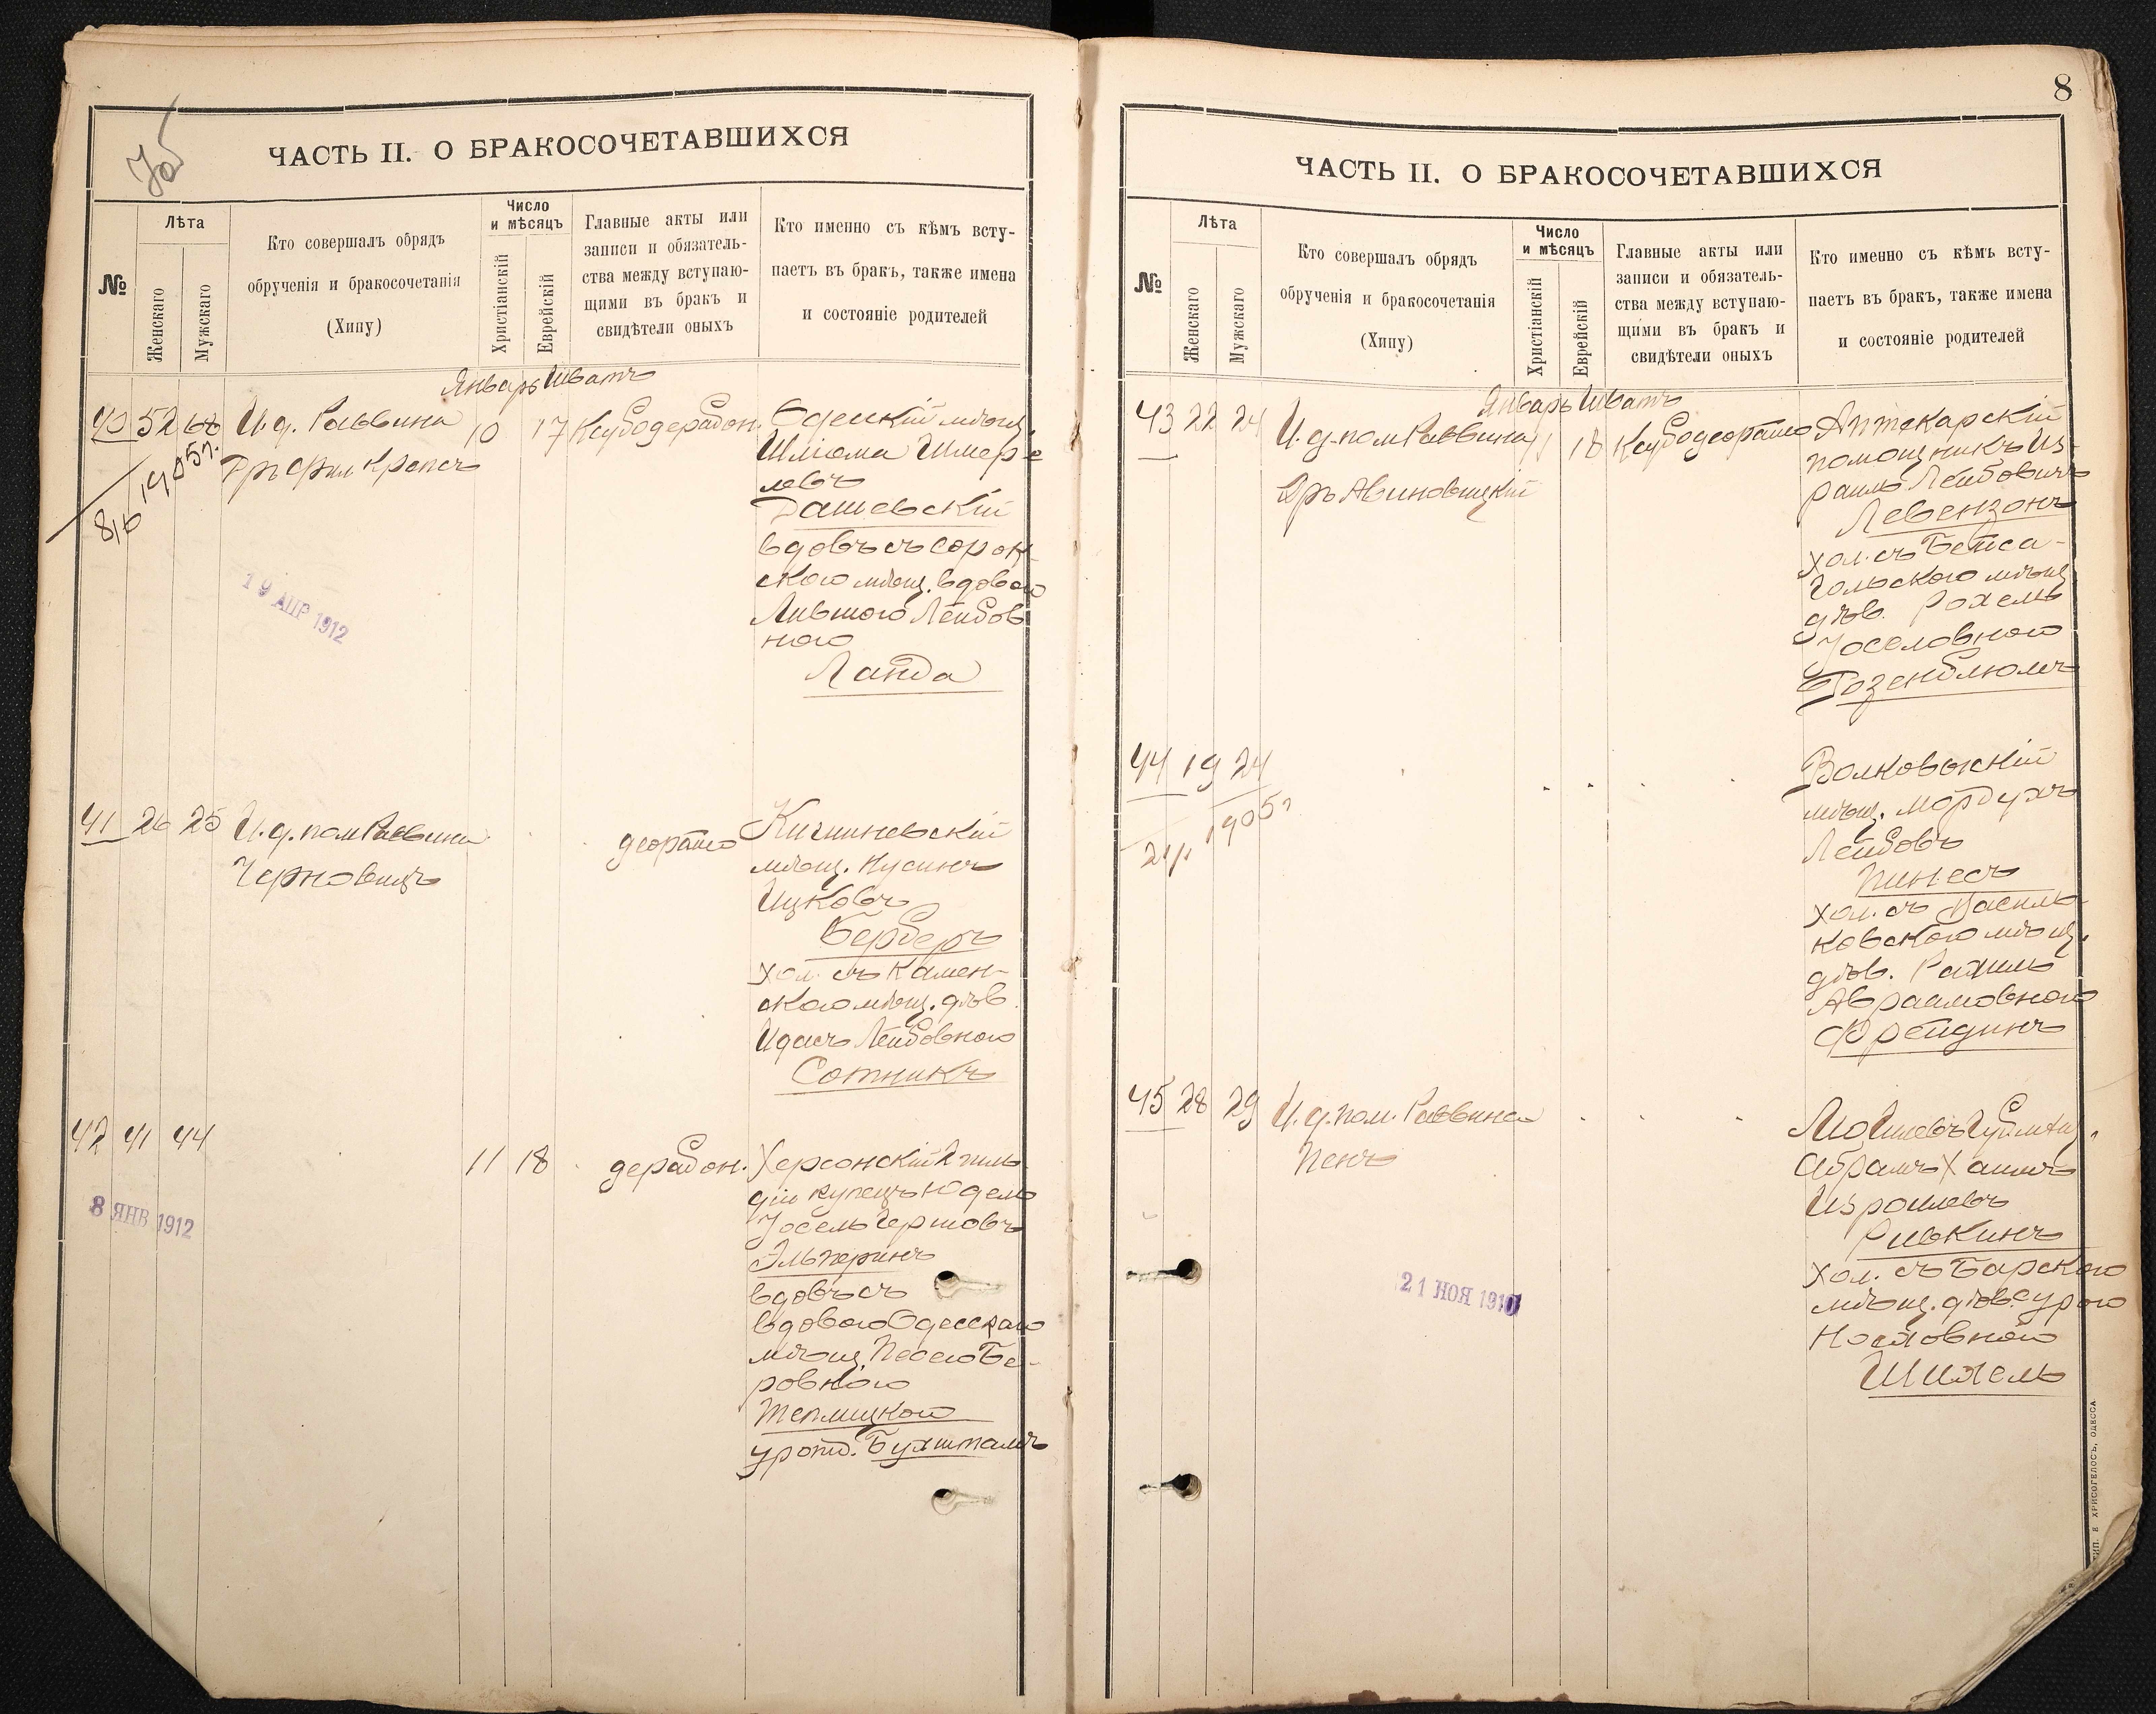 ЧАСТЬ II. О БРАКОСОЧЕТАВШИХСЯ
№
Лѣта
Женскаго
Мужскаго
Кто совершалъ обрядъ
обрученія и бракосочетанія
(Хипу)
Число
и мѣсяцъ
Христіанскій
Еврейскій
Главные акты или
записи и обязатель-
ства между вступаю-
щими въ бракъ и
свидѣтели оныхъ
Кто именно съ кѣмъ всту-
паетъ въ бракъ, также имена
и состояніе родителей
Январь Шватъ
40 52 68 И.д. Раввина 10 17
Крепсъ
1905г.
816
Одесскій мѣщ.
Шліома Шмере-
левъ
Дашевскій
вдовъ съ сорок-
скою мѣщ. вдовою
Лившою Лейбов
ною
Ланда
19 АПР 1912
41 26 25 И.д. пом Раввина
Черновицъ
Кишиневскій
мѣщ. Нусинъ
Ицковъ
Берберъ
хол. съ Камен-
скою мѣщ. дѣв.
Идась Лейбовною
Сотникъ
42 41 44 11 18
Херсонскій 2 гиль
діи купецъ Юдель
Іосель Гершовъ
Эльперинъ
вдовъ съ
вдовою Одесскаго
мѣщ. Песею Бе-
ровною
Теплицкой
урожд. Бухшталъ
8 ЯНВ 1912
8
ЧАСТЬ II. О БРАКОСОЧЕТАВШИХСЯ
№
Лѣта
Женскаго
Мужскаго
Кто совершалъ обрядъ
обрученія и бракосочетанія
(Хипу)
Число
и мѣсяцъ
Христіанскій
Еврейскій
Главные акты или
записи и обязатель-
ства между вступаю-
щими въ бракъ и
свидѣтели оныхъ
Кто именно съ кѣмъ всту-
паетъ въ бракъ, также имена
и состояніе родителей
Январь Шватъ
43 22 24 И.д. пом Раввина 11 18
Дръ Авиновицкій
Аптекарскій
помощникъ Из-
раиль Лейбовичъ
Левензонъ
хол. съ Бейса-
гольскою мѣщ.
дѣв. Рохель
Іоселовною
Розенблюмъ
44 19 24
1905г
Волковыскій
мѣщ. Мордухъ
Лейбовъ
Пинесъ
хол. съ Василь-
ковскою мѣщ.
дѣв. Рахиль
Авраамовною
Фрейдинъ
45 28 29 И.д. пом. Раввина
Пенъ
Абрамъ Хаимъ
Израилевъ
Ривкинъ
хол. съ Барскою
мѣщ. дѣв. Сурою
Носиовною
Шихель
21 НОЯ 1910
ТИП. Е ХРИСОГЕЛОСЪ, ОДЕССА